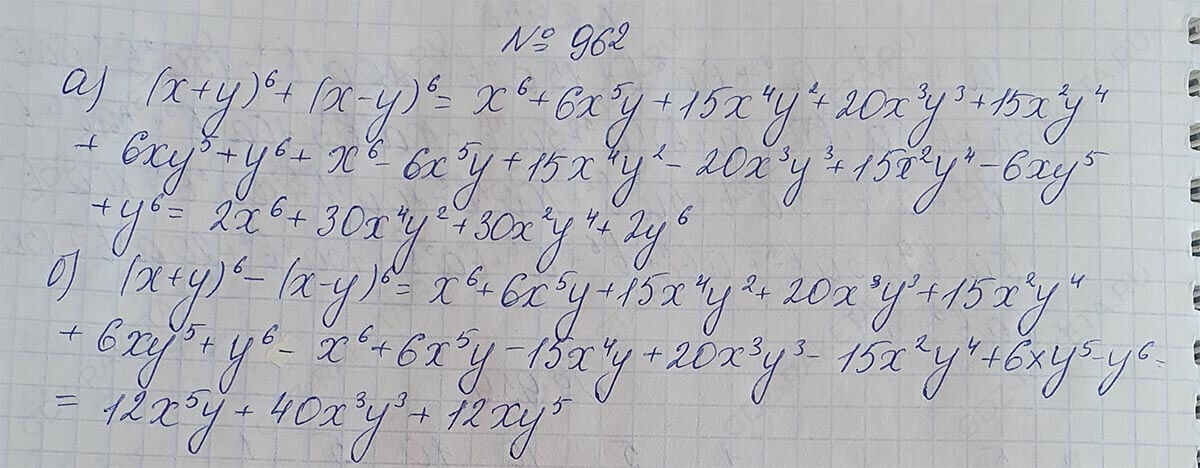 № 962
а) (x+y)⁶+(x-y)⁶= x⁶+6x⁵y+15x⁴y²+20x³y³+15x²y⁴
+ 6xy⁵+y⁶+ x⁶-6x⁵y+15x⁴y²-20x³y³+15x²y⁴-6xy⁵
+y⁶= 2x⁶+30x⁴y²+30x²y⁴+2y⁶
б) (x+y)⁶-(x-y)⁶= x⁶+6x⁵y+15x⁴y²+20x³y³+15x²y⁴
+ 6xy⁵+y⁶- x⁶+6x⁵y-15x⁴y+20x³y³-15x²y⁴+6xy⁵-y⁶=
= 12x⁵y+40x³y³+12xy⁵